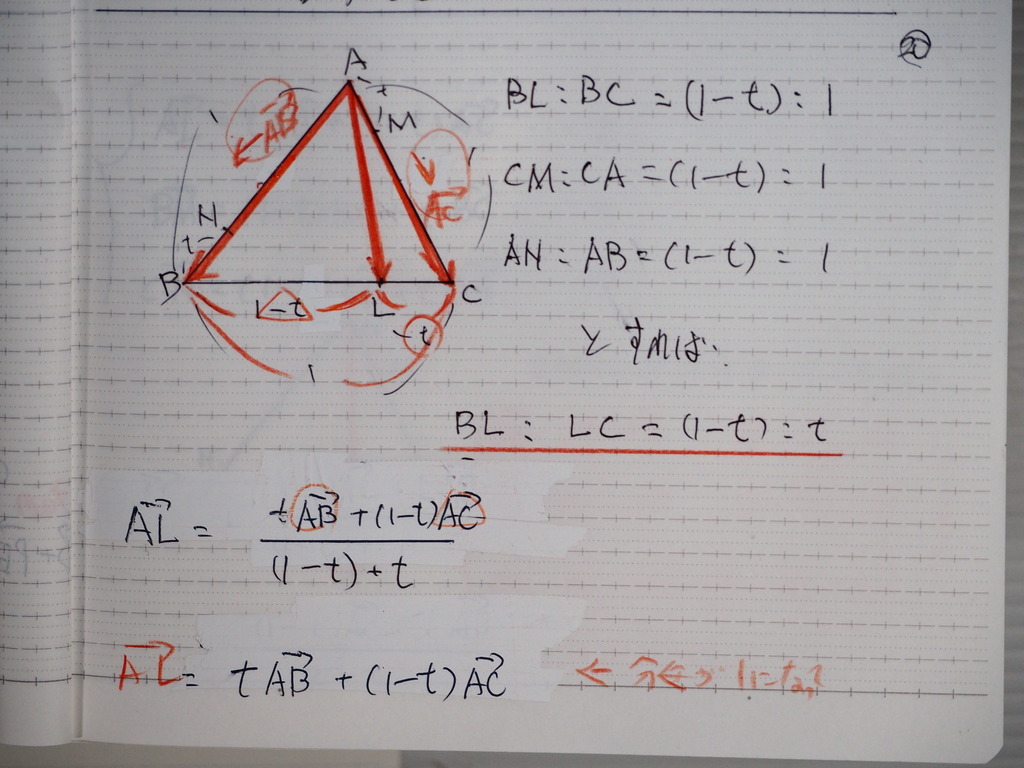 20
A
t
M
1
AB
1
AC
N
t
B
1-t
L
C
t
1
BL : BC = (1-t) : 1
CM : CA = (1-t) : 1
AN : AB = (1-t) : 1
とすれば.
BL : LC = (1-t) : t
AL = tAB + (1-t)AC
(1-t) + t
AL = tAB + (1-t)AC